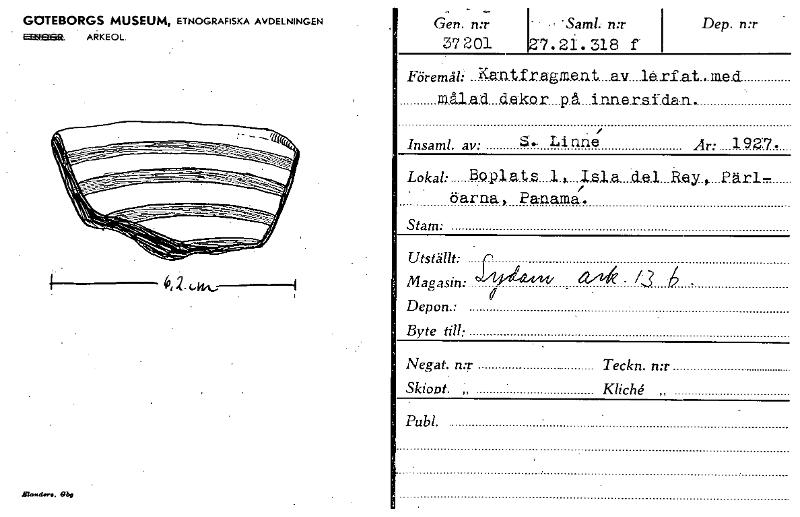 GÖTEBORGS MUSEUM, ETNOGRAFISKA AVDELNINGEN
ARKEOL.
6,2 cm
Elanders, Gbg
Gen. n:r Saml. n:r Dep. n:r
37201 27.21.318 f
Föremål: Kantfragment av lerfat med
målad dekor på innersidan.
Insaml. av: S. Linné År: 1927.
Lokal: Boplats 1, Isla del Rey, Pärl-
öarna, Panamá.
Stam:
Utställt:
Magasin: Sydam ark. 13 b.
Depon.:
Byte till:
Negat. n:r Teckn. n:r
Skiopt. „ Kliché „
Publ.